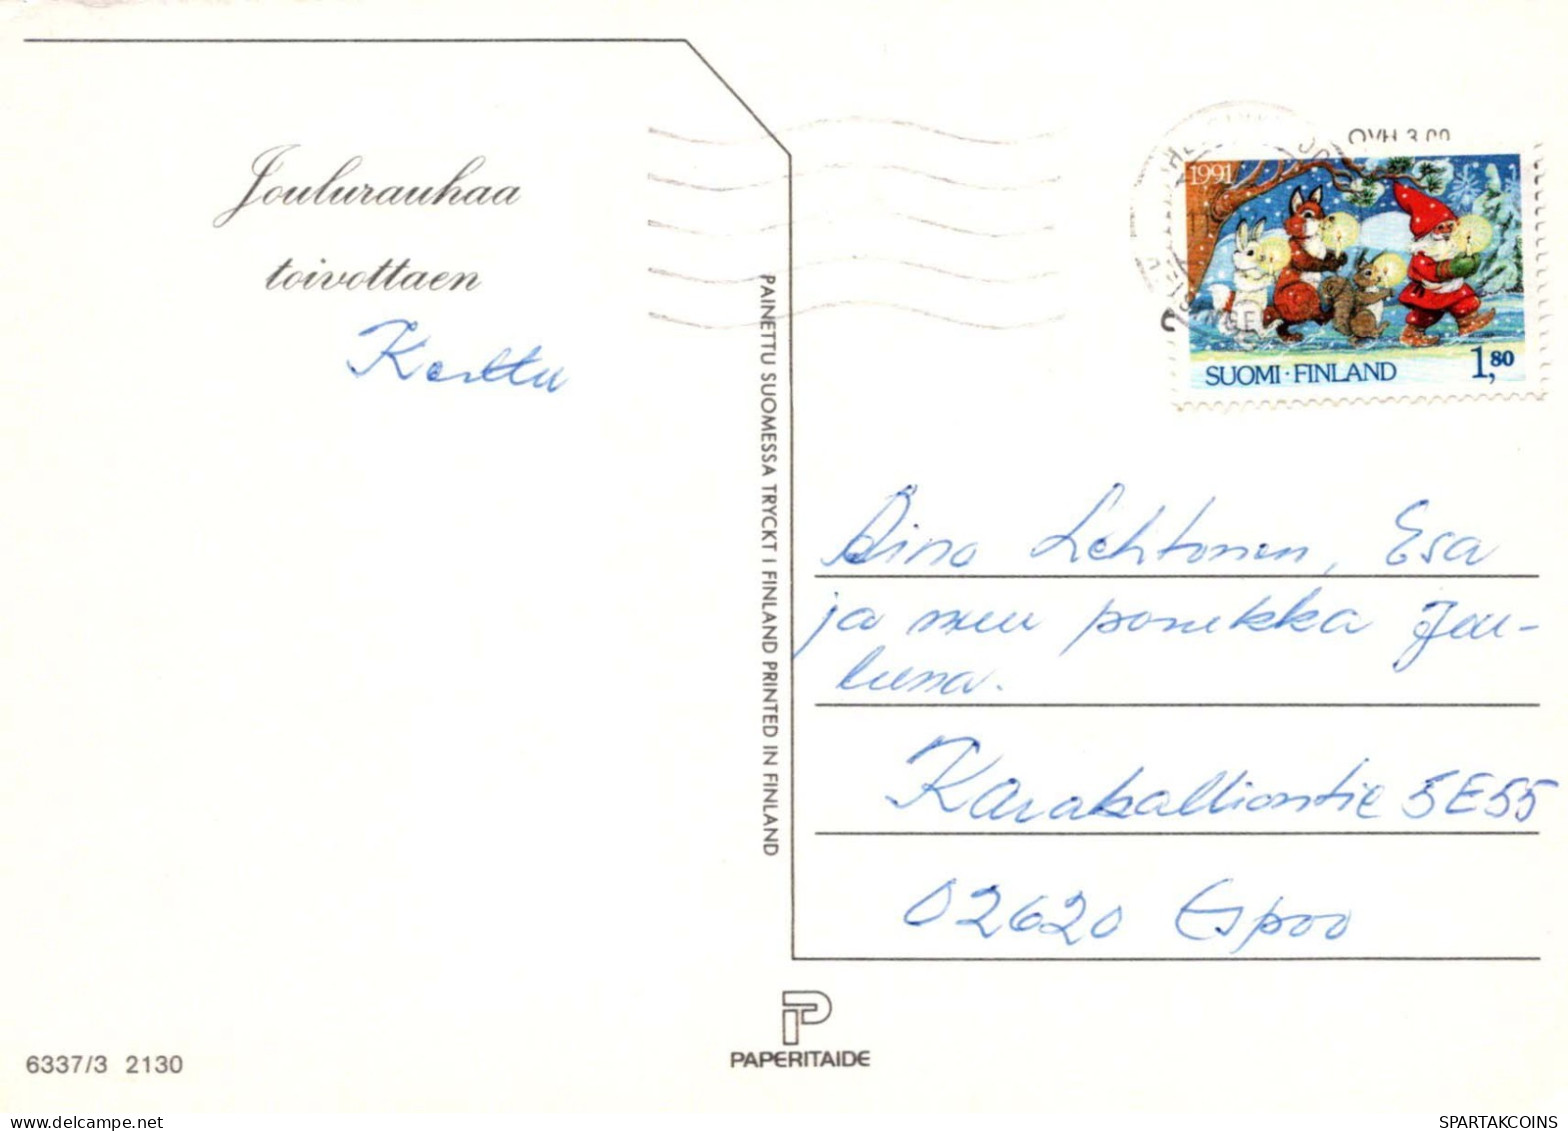 Joulurauhaa
toivottaen
Kerttu
PAINETTU SUOMESSA TRYCKT I FINLAND PRINTED IN FINLAND
OVH 3.00
1991
SUOMI · FINLAND 1,80
Aino Lehtonen, Esa
ja muu porukka Jou-
luna.
Karakalliontie 5E55
02620 Espoo
P
PAPERITAIDE
6337/3 2130
SPARTAKCOINS